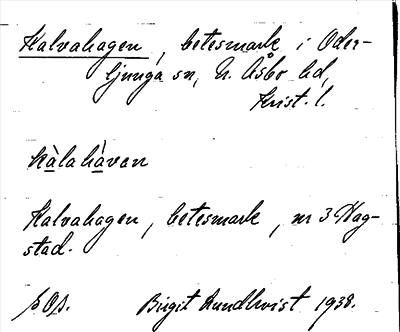 Kalvahagen, betesmark i Oder-
ljunga sn, N. Åsbo hd,
Krist. l.
kàlahàvan
Kalvahagen, betesmark, nr 3 Hag-
stad.
Birgit Rundkvist 1938.